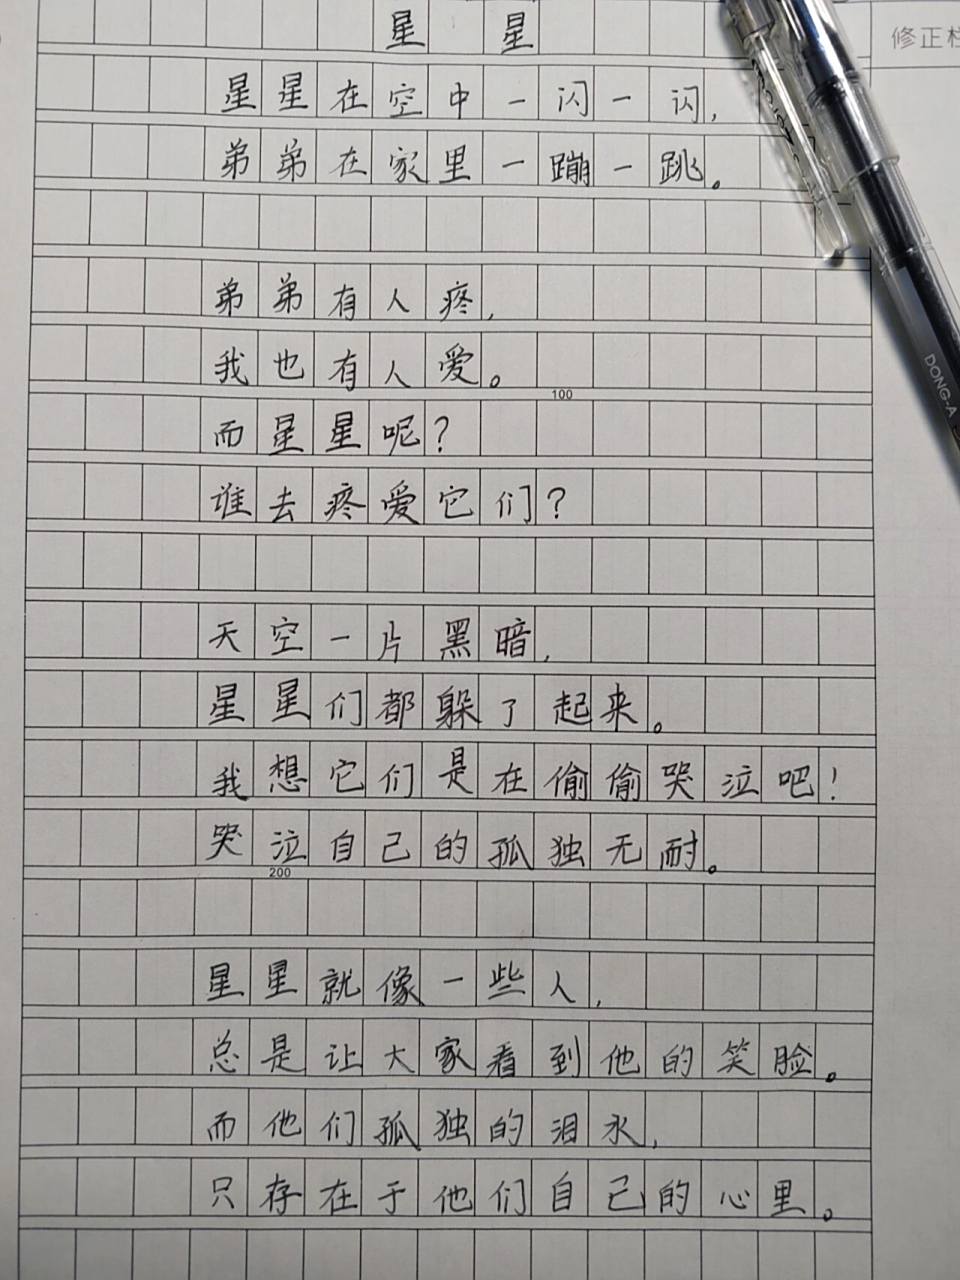 星 星
修正栏
星星在空中一闪一闪，
弟弟在家里一蹦一跳。
弟弟有人疼，
我也有人爱。
100
而星星呢？
谁去疼爱它们？
天空一片黑暗，
星星们都躲了起来。
我想它们是在偷偷哭泣吧！
哭泣自己的孤独无耐。
200
星星就像一些人，
总是让大家看到他的笑脸。
而他们孤独的泪水，
只存在于他们自己的心里。
DONG-A